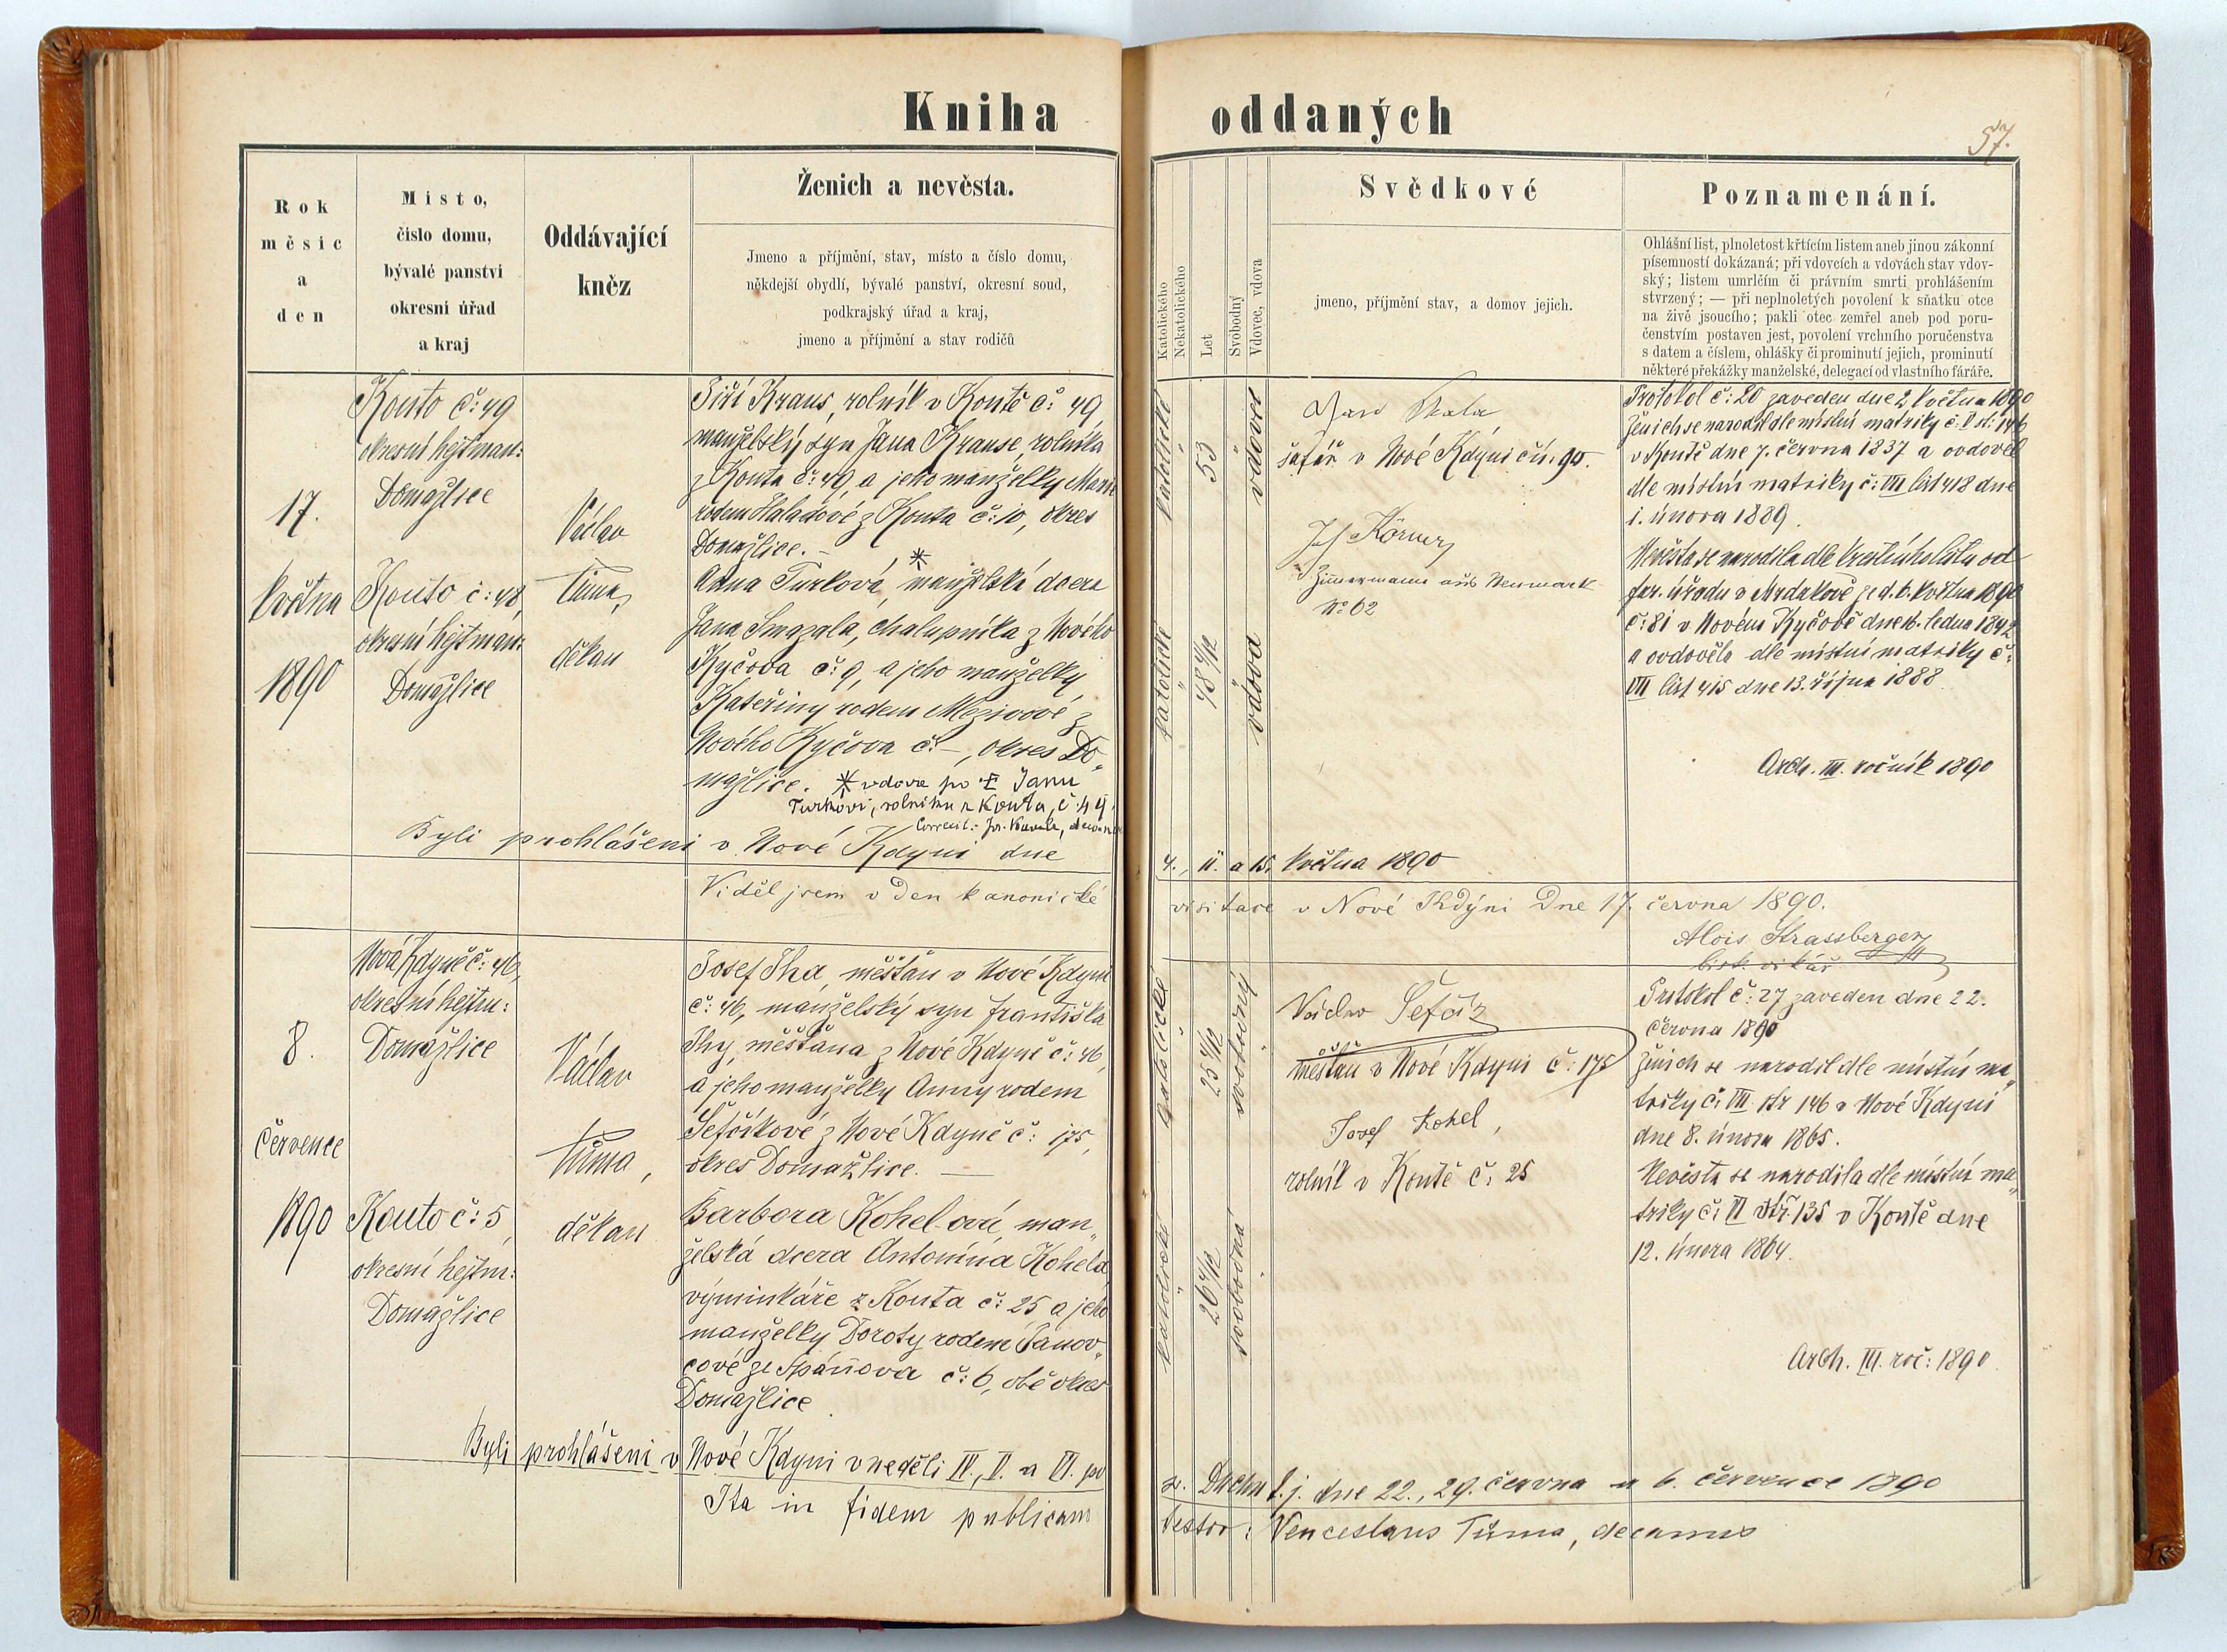 Kniha oddaných
57.
Rok
měsíc
a
den
Místo,
číslo domu,
bývalé panství
okresní úřad
a kraj
Oddávající
kněz
Ženich a nevěsta.
Jmeno a příjmění, stav, místo a číslo domu,
někdejší obydlí, bývalé panství, okresní soud,
podkrajský úřad a kraj,
jmeno a příjmění a stav rodičů
Katolického
Nekatolického
Let
Svobodný
Vdovec, vdova
Svědkové
jmeno, příjmění stav, a domov jejich.
Poznamenání.
Ohlášní list, plnoletost křtícím listem aneb jinou zákonní
písemností dokázaná; při vdovcích a vdovách stav vdov-
ský; listem umrlčím či právním smrti prohlášením
stvrzený; — při neplnoletých povolení k sňatku otce
na živě jsoucího; pakli otec zemřel aneb pod poru-
čenstvím postaven jest, povolení vrchního poručenstva
s datem a číslem, ohlášky či prominutí jejich, prominutí
některé překážky manželské, delegací od vlastního faráře.
17.
května
1890
Kouto č: 49
okresní hejtman:
Domažlice
Kouto č: 48,
okresní hejtman:
Domažlice
Václav
Tůma,
děkan
Jiří Kraus, rolník v Koutě č: 49
manželský syn Jana Krause, rolníka
z Kouta č: 49, a jeho manželky Marie
rodem Haladové z Kouta č: 10, okres
Domažlice. –
Anna Turková, * manželská dcera
Jana Smazala, chalupníka z Nového
Kyčova č: 9, a jeho manželky
Kateřiny rodem
Nového Kyčova č: –, okres Do„
mažlice. * vdova po † Janu
Turkovi, rolníku z Kouta, č. 49.
Correxit:
Byli prohlášeni v Nové Kdyni dne
4., 11. a 15. května 1890
katolické
53
vdovec
katolické
48 4/12
vdova
Jan Skala
šafář v Nové Kdyni čís. 90.
Jos. Körner
Zimmermann aus Neumark
No 62
Protokol č: 20 zaveden dne 2. května 1890
Ženich se narodil dle místní matriky č. V st: 146
v Koutě dne 7. června 1837 a ovdověl
dle místní matriky č: VIII list 418 dne
1. února 1889.
Nevěsta se narodila dle křestního listu od
far. úřadu v Mrdakově ze d. 6. května 1890
č: 81 v Novém Kyčově dne 16. ledna 1842
a ovdověla dle místní matriky č:
VIII list 415 dne 13. října 1888.
Arch. III. ročník 1890
Viděl jsem v Den kanonické
visitace v Nové Kdýni Dne 17. června 1890.
Alois Strassberger
bisk. vikář
8.
července
1890
Nová Kdyně č: 46,
okresní hejtm:
Domažlice
Kouto č: 5,
okresní hejtm:
Domažlice
Václav
Tůma,
děkan
Josef Iha, měšťan v Nové Kdyni
č: 46, manželský syn Františka
Ihy, měšťana z Nové Kdyně č: 46,
a jeho manželky Anny rodem
Šefčíkové z Nové Kdyně č: 175,
okres Domažlice. —
Barbora Kohel-ová, man„
želská dcera Antonína Kohela,
výminkáře z Kouta č: 25 a jeho
manželky Doroty rodem Janov„
cové ze Spáňova č: 6, obě okres
Domažlice.
katolické
25 5/12
svobodný
katolické
26 5/12
svobodná
Václav Šefčík
měšťan v Nové Kdyni č: 175
Josef Kohel,
rolník v Koutě č: 25
Protokol č: 27 zaveden dne 22.
června 1890
Ženich se narodil dle místní ma„
triky č: VIII. str 146 v Nové Kdyni
dne 8. února 1865.
Nevěsta se narodila dle místní ma„
triky č: VI str. 135 v Koutě dne
12. února 1864.
Arch. III. roč: 1890.
Byli prohlášeni v Nové Kdyni v neděli IV., V. a VI. po
sv. Duchu t. j. dne 22., 29. června a 6. července 1890
Ita in fidem publicam
testor: Venceslaus Tůma, decanus